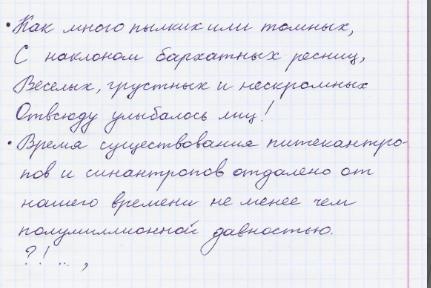 • Как много пылких или томных,
С наклоном бархатных ресниц,
Веселых, грустных и нескромных
Отвсюду улыбалось лиц!
• Время существования питекантро-
пов и синантропов отдалено от
нашего времени не менее чем
полумиллионной давностью.
?! .. ,